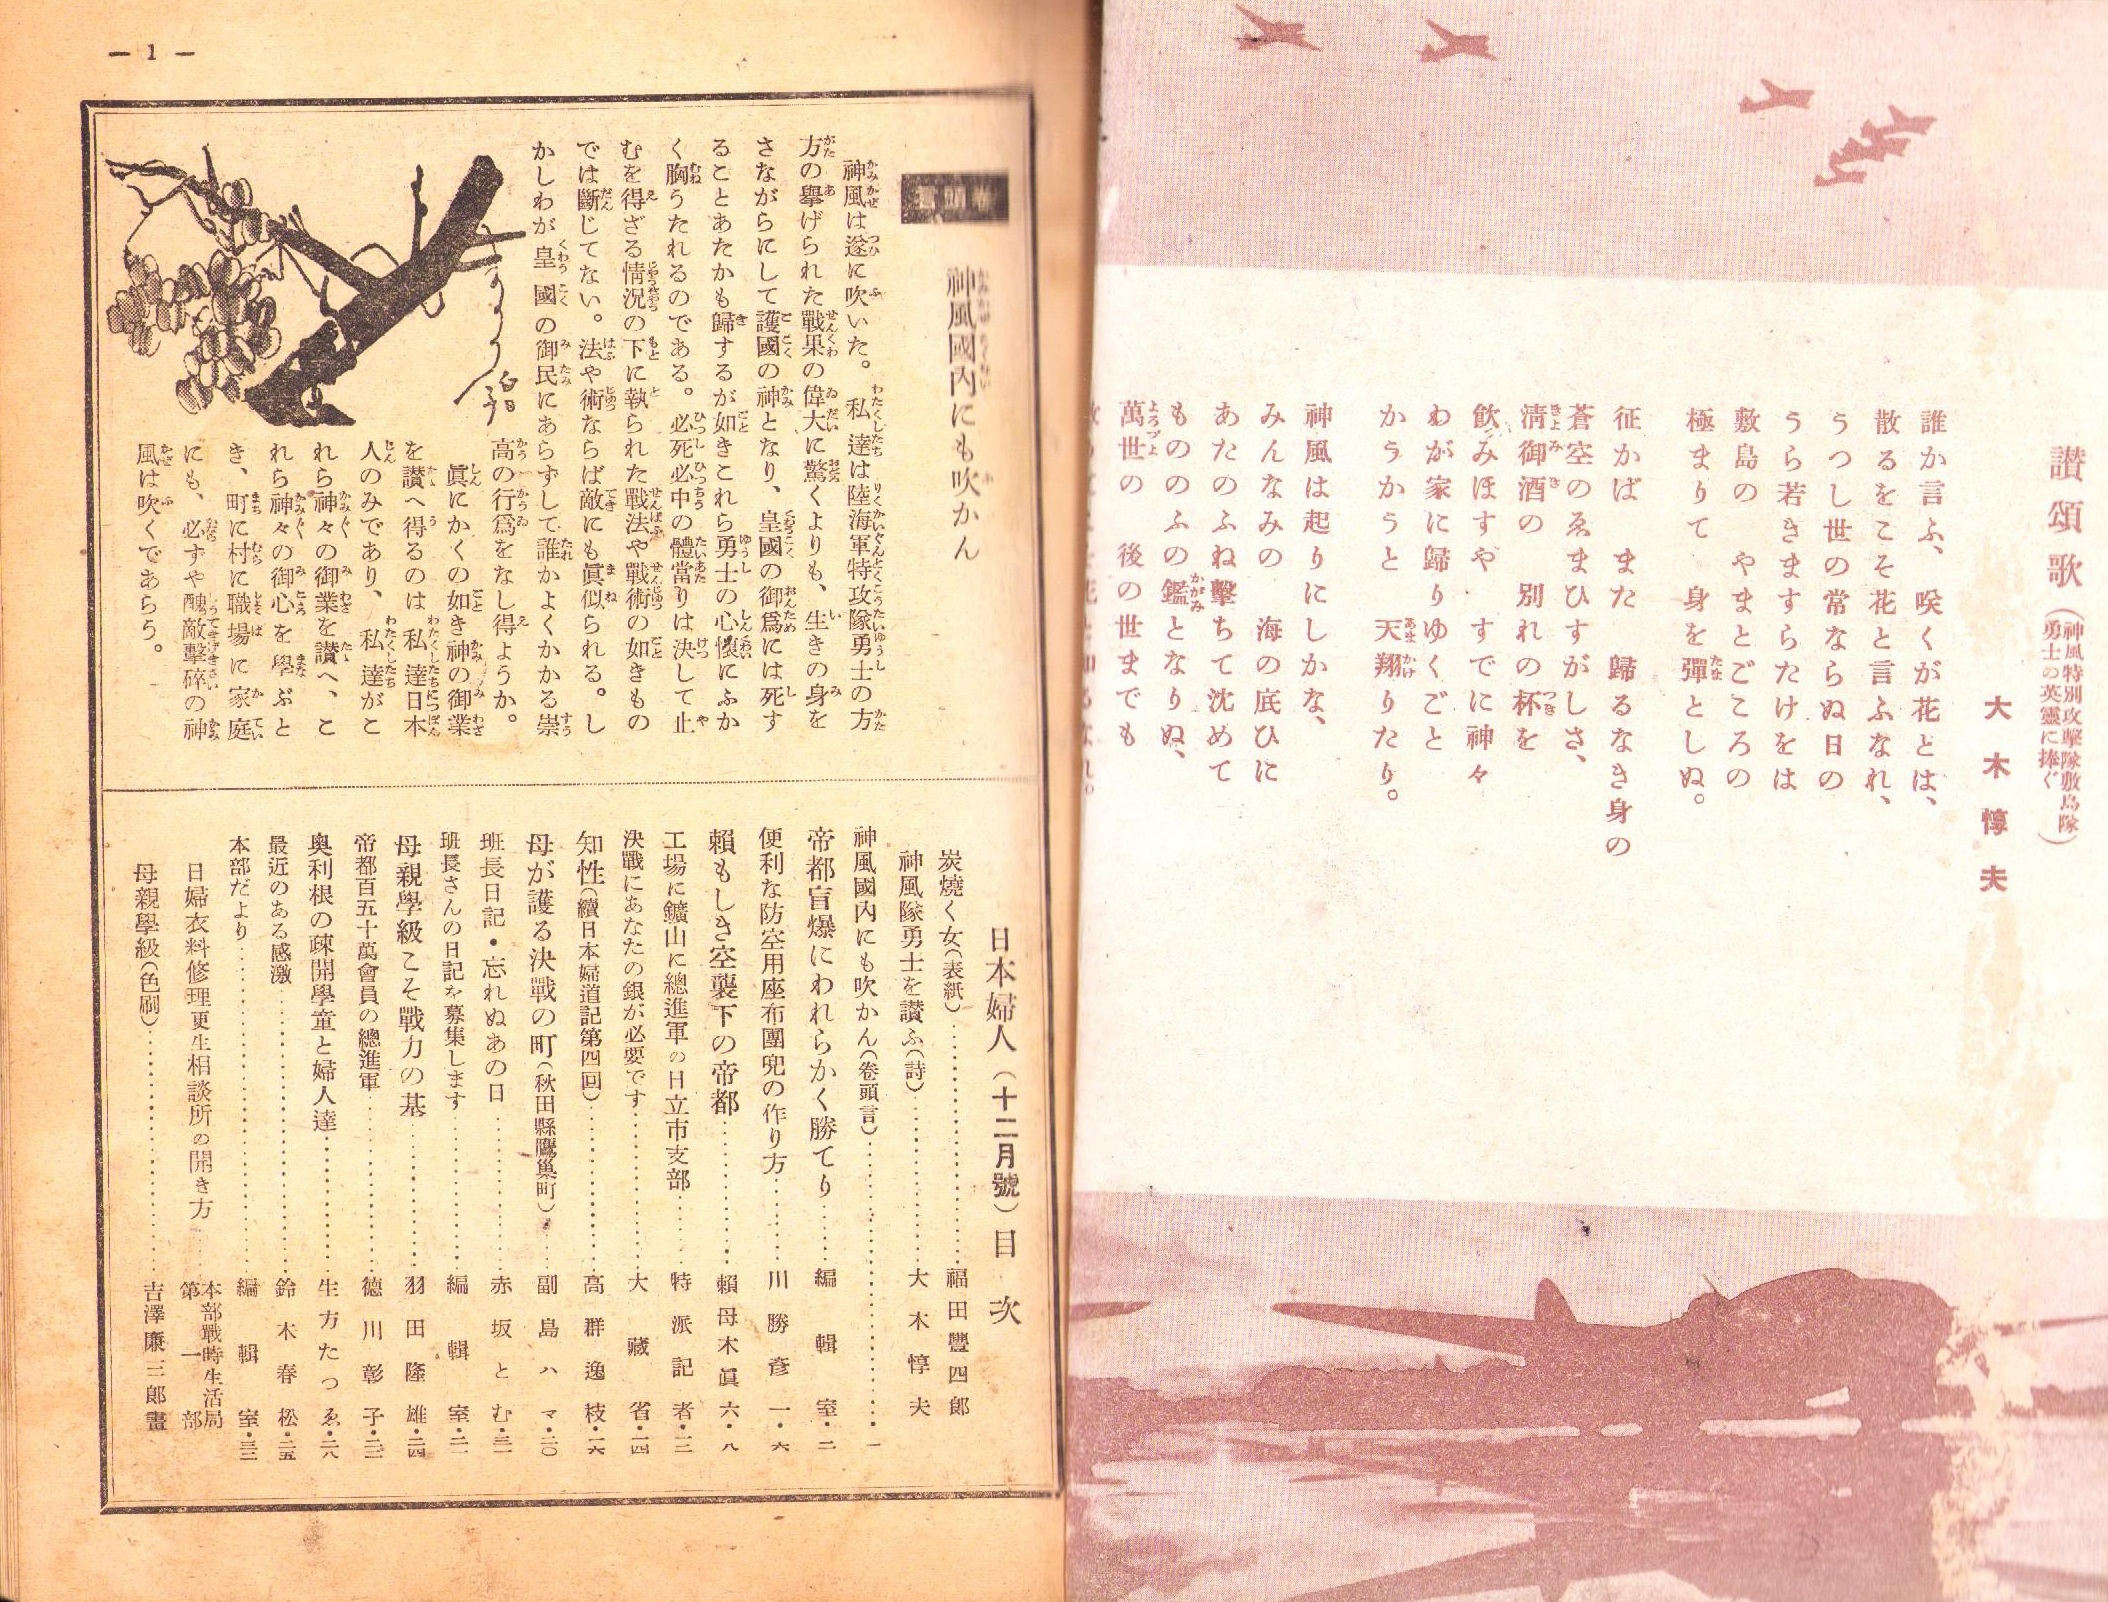 讃頌歌(神風特別攻擊隊敷島隊
勇士の英靈に捧ぐ)
大木惇夫
誰か言ふ、咲くが花とは、
散るをこそ花と言ふなれ、
うつし世の常ならぬ日の
うら若きますらたけをは
敷島の やまとごころの
極まりて 身を彈としぬ。
征かば また 歸るなき身の
蒼空のゑまひすがしさ、
淸御酒の 別れの杯を
飮みほすや すでに神々
わが家に歸りゆくごと
かうかうと 天翔りたり。
神風は起りにしかな、
みんなみの 海の底ひに
あたのふね擊ちて沈めて
もののふの鑑となりぬ、
萬世の 後の世までも
— 1 —
卷頭言
神風國內にも吹かん
神風は遂に吹いた。私達は陸海軍特攻隊勇士の方
方の擧げられた戰果の偉大に驚くよりも、生きの身を
さながらにして護國の神となり、皇國の御爲には死す
ることあたかも歸するが如きこれら勇士の心懷にふか
く胸うたれるのである。必死必中の體當りは決して止
むを得ざる情況の下に執られた戰法や戰術の如きもの
では斷じてない。法や術ならば敵にも眞似られる。し
かしわが皇國の御民にあらずして誰かよくかかる崇
高の行爲をなし得ようか。
眞にかくの如き神の御業
を讃へ得るのは私達日本
人のみであり、私達がこ
れら神々の御業を讃へ、こ
れら神々の御心を學ぶと
き、町に村に職場に家庭
にも、必すや醜敵擊碎の神
風は吹くであらう。
日本婦人(十二月號)目次
炭燒く女(表紙)……福田豐四郎
神風隊勇士を讃ふ(詩)……大木惇夫
神風國內にも吹かん(卷頭言)……一
帝都盲爆にわれらかく勝てり……編輯室・二
便利な防空用座布團兜の作り方……川勝彥一・六
賴もしき空襲下の帝都……賴母木眞六・八
工場に鑛山に總進軍の日立市支部……特派記者・一二
決戰にあなたの銀が必要です……大藏省・一四
知性(續日本婦道記第四回)……高群逸枝・一六
母が護る決戰の町(秋田縣鷹巢町)……副島ハマ・二〇
班長日記・忘れぬあの日……赤坂とむ・三一
班長さんの日記を募集します……編輯室・二一
母親學級こそ戰力の基……羽田隆雄・二四
帝都百五十萬會員の總進軍……德川彰子・二二
奧利根の疎開學童と婦人達……生方たつゑ・二八
最近のある感激……鈴木春松・二五
本部だより……編輯室・三三
日婦衣料修理更生相談所の開き方……本部戰時生活局第一部
母親學級(色刷)……吉澤廉三郎畫